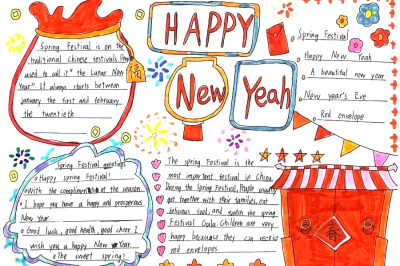 HAPPY
New
Yeah
Spring Festival is on the
traditional Chinese festivals. People
used to call it "the Lunar New
Year" it always starts between
january the first and february
the twentieth
福
Spring Festival
Happy New Yeah
A beautiful new year
New year's Eve
Red envelope
Spring Festival greetings
Happy spring Festival!
With the compliments of the season.
I hope you have a happy and prosperous
New Year...
Good luck, good health, good cheer. I
wish you a happy New Year.
The sweet spring!
The spring festival is the
most important festival in China.
During the Spring Festival, People usually
get together with their families, eat
delicious food, and watch the spring
Festival Gala. Children are very
happy because they can receive
red envelopes.
春